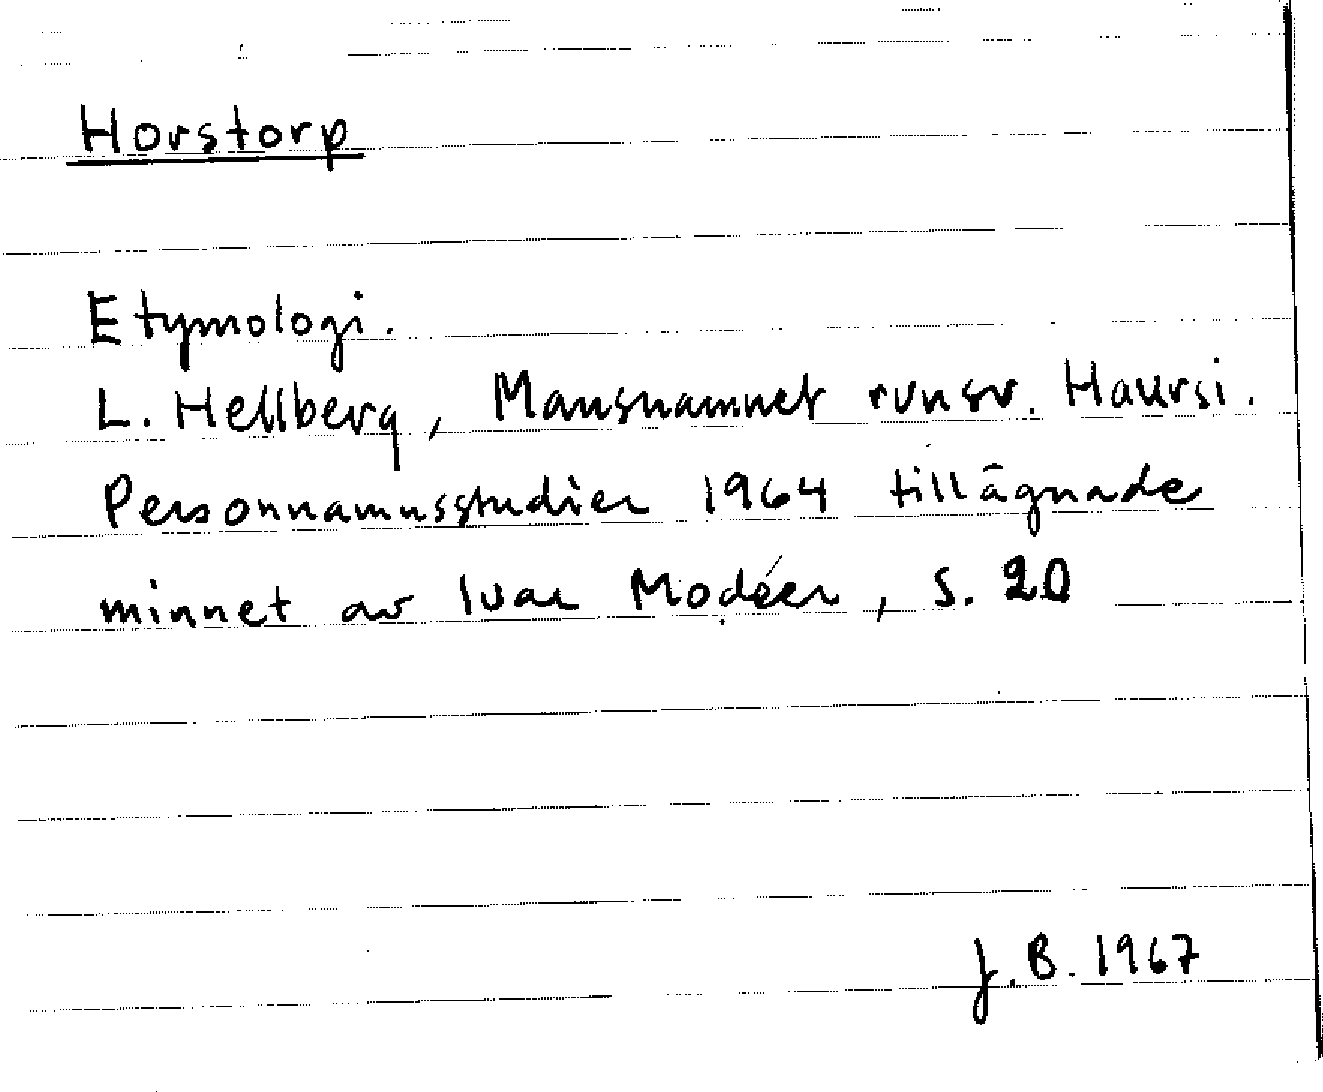 Horstorp
Etymologi.
L. Hellberg, Mansnamnet runsv. Haursi.
Personnamnsstudier 1964 tillägnade
minnet av Ivar Modéer, s. 20
J.B. 1967